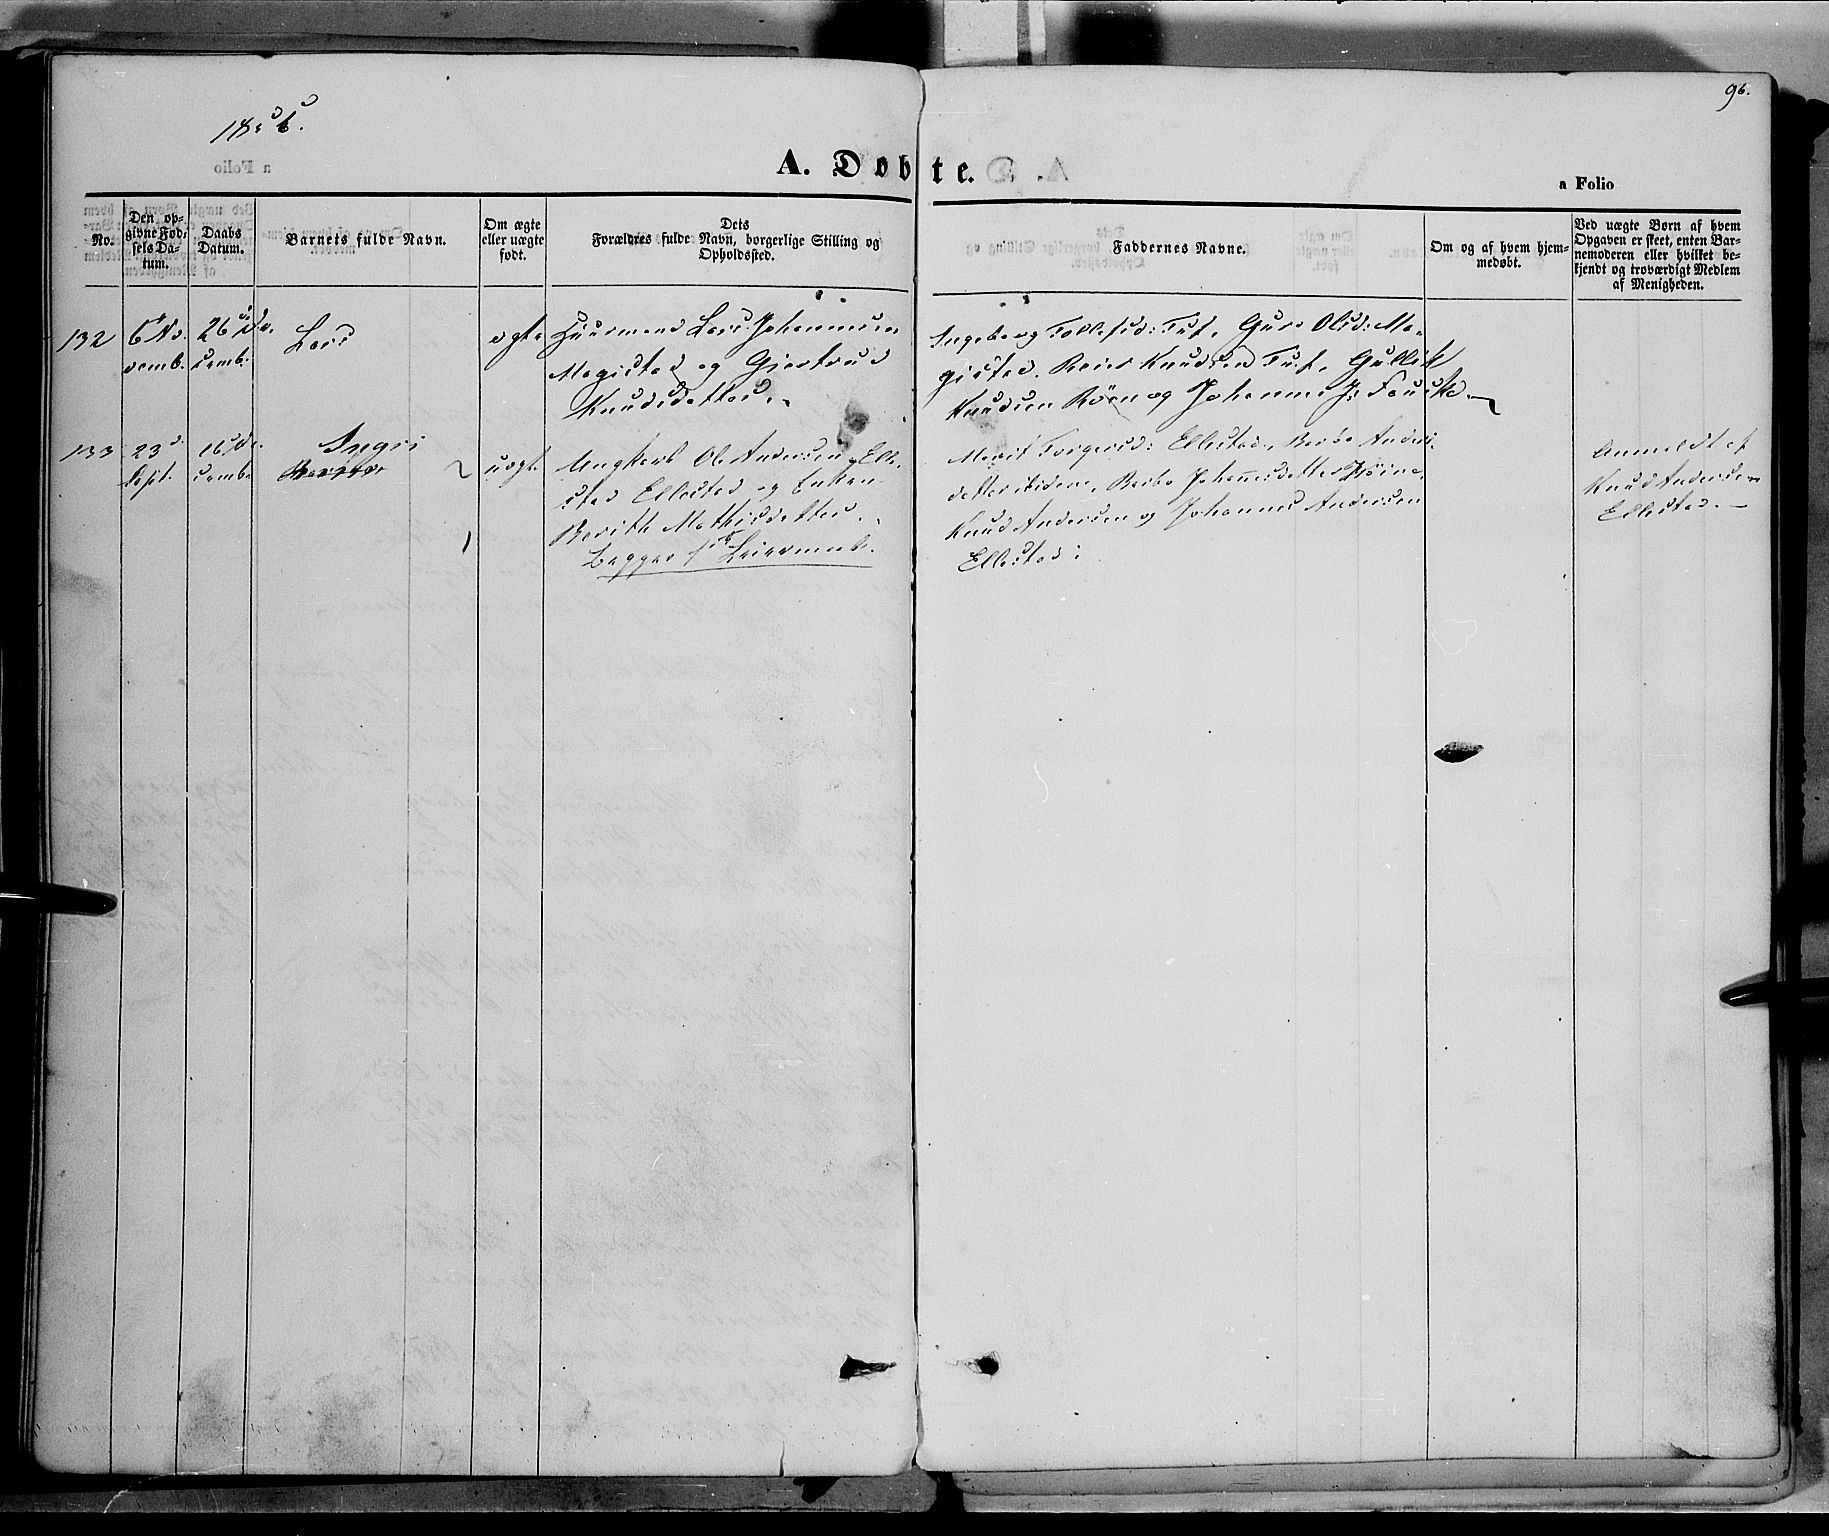 96.
A. Døbte.
a Folio
No.
Den op-
givne Fød-
sels Da-
tum.
Daabs
Datum.
Barnets fulde Navn.
Om ægte
eller uægte
født.
Dets
Forældres fulde Navn, borgerlige Stilling og
Opholdssted.
Faddernes Navne.
Om og af hvem hjem-
medøbt.
Ved uægte Børn af hvem
Opgaven er skeet, enten Bar-
nemoderen eller hvilket be-
kjendt og troværdigt Medlem
af Menigheden.
132
6 No-
vemb.
26 De-
cemb.
Lars
ægte
Huusmand Lars Johannesen
Magistad og Gjertrud
Knudsdatter.
Ingeborg Tollefsd: Tuf, Guro Olsd: Ma-
gistad, Reier Knudsen Tuf, Gullik
Knudsen Røen og Johannes J: Fauske
133
23
Sept.
26 De-
cemb.
Ingri
uægte
Ungkarl Ole Andersen Elle-
stad Ellestad og Enken
Berith Mathisdatter.
Begges 1ste Leiermaal.
Marit Torgersd: Ellestad, Barbo Anders-
datter ibidem, Barbo Johannesdatter
Knud Andersen og Johannes Andersen
Ellestad:
Anmeldt af
Knud Andersen
Ellestad.